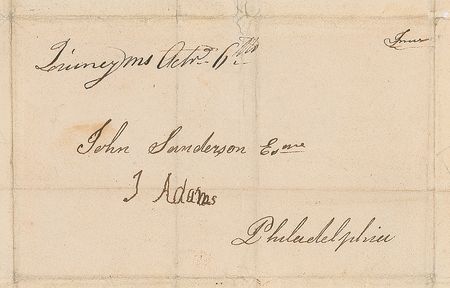 Quincy ms Octr. 6th
John Sanderson Esqre
J Adams
Philadelphia